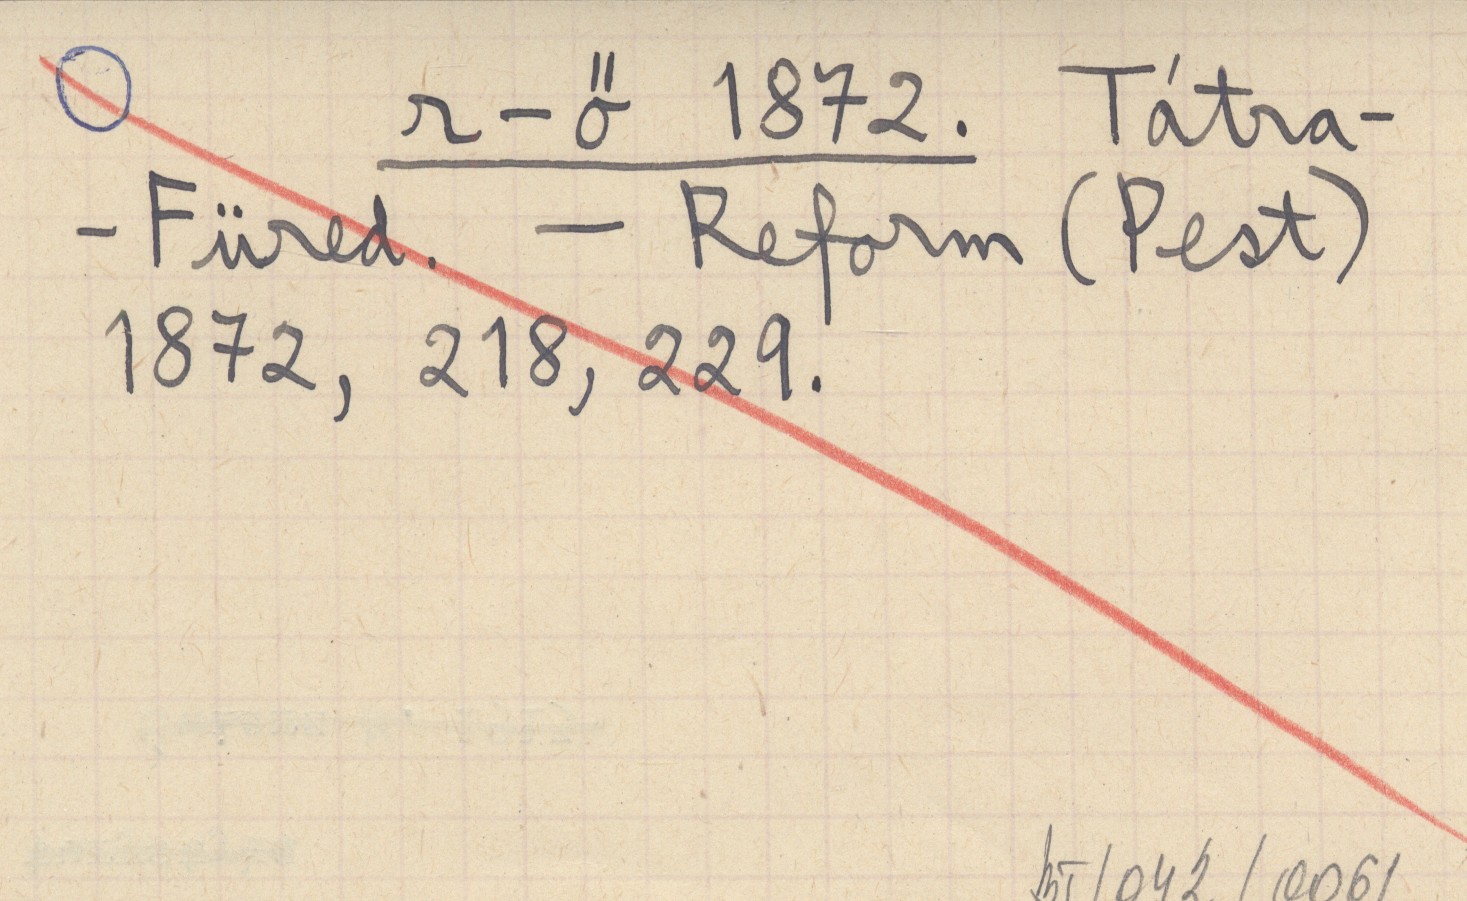 r-ő 1872. Tátra-
-Füred. - Reform (Pest)
1872, 218, 229.
/042/0061